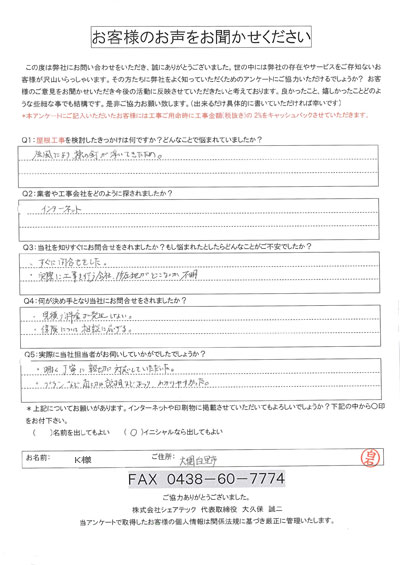 お客様のお声をお聞かせください
この度は弊社にお問い合わせをいただき、誠にありがとうございました。世の中には弊社の存在やサービスをご存知ないお
客様が沢山いらっしゃいます。その方たちに弊社をよく知っていただくためのアンケートにご協力いただけるでしょうか? お客
様のご意見をお聞かせいただき今後の活動に反映させていただきたいと考えております。良かったこと、嬉しかったことどのよ
うな些細な事でも結構です。是非ご協力お願い致します。(出来るだけ具体的に書いていただければ幸いです)
*本アンケートにご記入いただいたお客様には工事ご用命時に工事金額(税抜き)の2%をキャッシュバックさせていただきます。
Q1:屋根工事を検討したきっかけは何ですか?どんなことで悩まれていましたか?
強風により 棟の釘が浮いてきたため。
Q2:業者や工事会社をどのように探されましたか?
インターネット
Q3:当社を知りすぐにお問合せをされましたか?もし悩まれたとしたらどんなことがご不安でしたか?
・すぐに問合せをした。
・実際に工事を行う会社、所在地がどこなのか不明
Q4:何が決め手となり当社にお問合せをされましたか?
・見積り料金が発生しない。
・保険についても相談に応じる。
Q5:実際に当社担当者がお伺いしていかがでしたでしょうか?
・明るく丁寧に親切な対応をしていただいた。
・プランなど 適切な説明もあって、わかりやすかった。
*上記についてお願いがあります。インターネットや印刷物に掲載させていただいてもよろしいでしょうか? 下記の中から〇印
をお付下さい。
( )名前を出してもよい (〇)イニシャルなら出してもよい
お名前: K様 ご住所: 大網白里市
白石
FAX 0438-60-7774
ご協力ありがとうございました。
株式会社シェアテック 代表取締役 大久保 誠二
当アンケートで取得したお客様の個人情報は関係法規に基づき厳正に管理いたします。